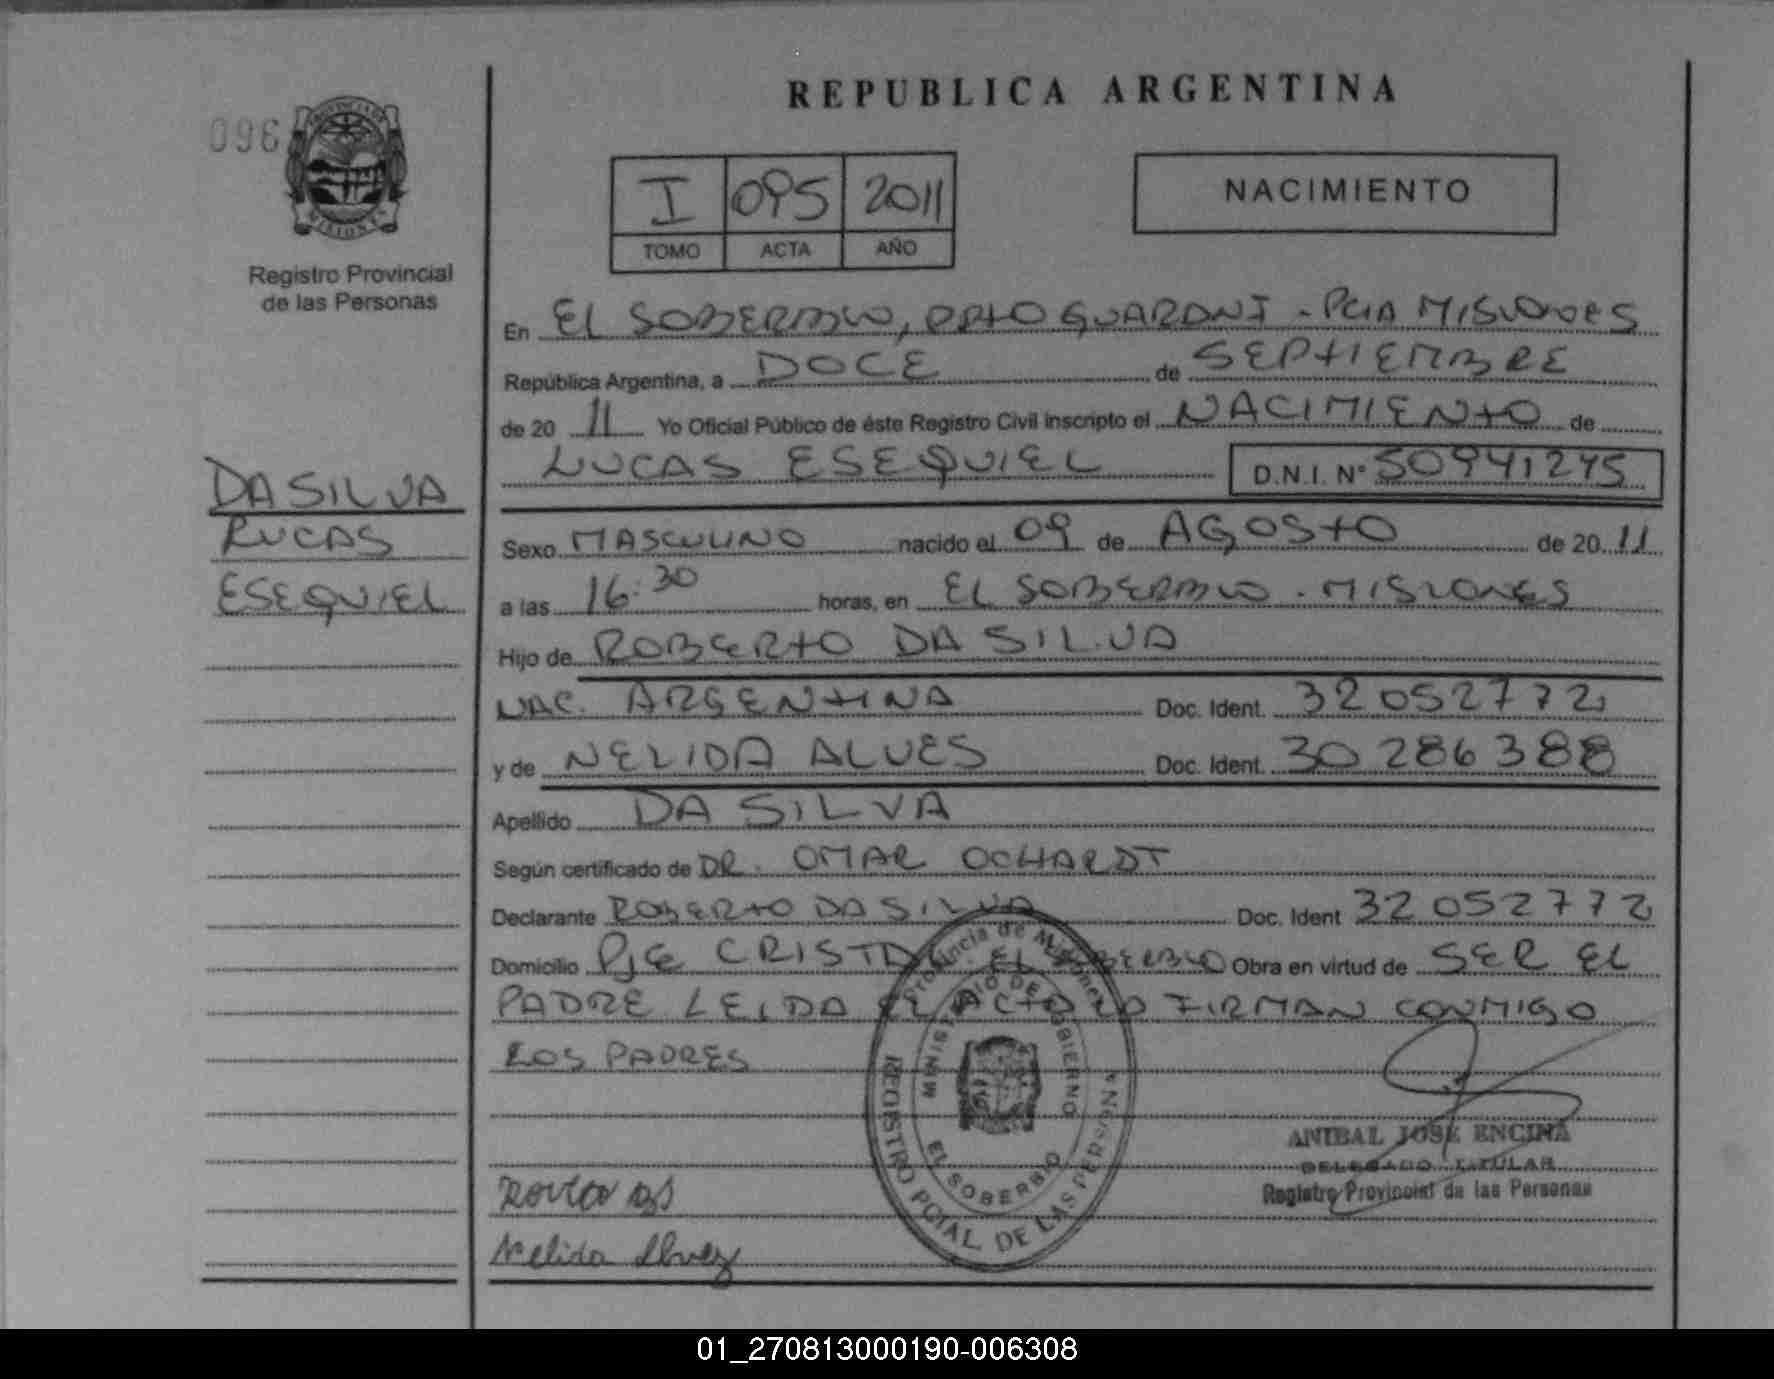 REPUBLICA ARGENTINA
096
PROVINCIA DE
MISIONES
Registro Provincial
de las Personas
I 095 2011
TOMO ACTA AÑO
NACIMIENTO
En EL SOBERBIO, DPTO GUARANI - PCIA MISIONES
República Argentina, a DOCE de SEPTIEMBRE
de 2011 Yo Oficial Público de éste Registro Civil inscripto el NACIMIENTO de
LUCAS ESEQUIEL D.N.I. Nº 50941275
DA SILVA
LUCAS
ESEQUIEL
Sexo MASCULINO nacido el 09 de AGOSTO de 2011
a las 16:30 horas, en EL SOBERBIO - MISIONES
Hijo de ROBERTO DA SILVA
NAC. ARGENTINA Doc. Ident. 32052772
y de NELIDA ALVES Doc. Ident. 30286388
Apellido DA SILVA
Según certificado de DR. OMAR OCHARDT
Declarante ROBERTO DA SILVA Doc. Ident 32052772
Domicilio PJE CRISTAL EL SOBERBIO Obra en virtud de SER EL
PADRE LEIDA EL ACTA LO FIRMAN CONMIGO
LOS PADRES
Provincia de Misiones
MINISTERIO DE GOBIERNO
EL SOBERBIO
REGISTRO PCIAL. DE LAS PERSONAS
ANIBAL JOSE ENCINA
DELEGADO TITULAR
Registro Provincial de las Personas
Nelida Alvez
01_270813000190-006308